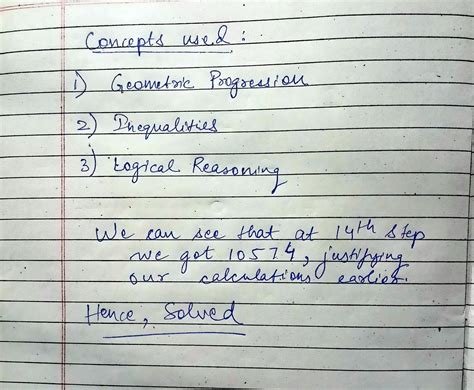 Concepts used :
1) Geometric Progression
2) Inequalities
3) Logical Reasoning
We can see that at 14th step
we got 10574, justifying
our calculations earlier.
Hence, Solved